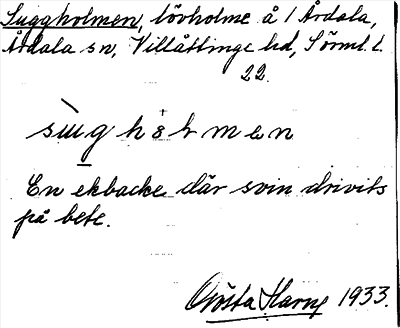 Suggholmen, lövholme å 1 Årdala,
Årdala sn, Villåttinge hd, Sörml. l.
22.
sùg hålmen
En ekbacke där svin drivits
på bete.
Gösta Harne 1933.